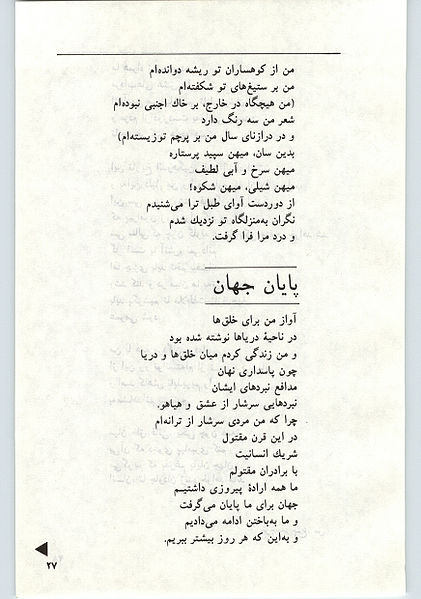 من از کوهساران تو ریشه دوانده‌ام
من بر ستیغ‌های تو شکفته‌ام
(من هیچگاه در خارج، بر خاك اجنبی نبوده‌ام
شعر من سه رنگ دارد
و در درازنای سال من بر پرچم توزیسته‌ام)
بدین سان، میهن سپید پرستاره
میهن سرخ و آبی لطیف
میهن شیلی، میهن شکوه!
از دوردست آوای طبل ترا می‌شنیدم
نگران به‌منزلگاه تو نزدیك شدم
و درد مرا فرا گرفت.
پایان جهان
آواز من برای خلق‌ها
در ناحیهٔ دریاها نوشته شده بود
و من زندگی کردم میان خلق‌ها و دریا
چون پاسداری نهان
مدافع نبردهای ایشان
نبردهایی سرشار از عشق و هیاهو.
چرا که من مردی سرشار از ترانه‌ام
در این قرن مقتول
شریك انسانیت
با برادران مقتولم
ما همه ارادهٔ پیروزی داشتیم
جهان برای ما پایان می‌گرفت
و ما به‌باختن ادامه می‌دادیم
و به‌این که هر روز بیشتر ببریم.
۲۷